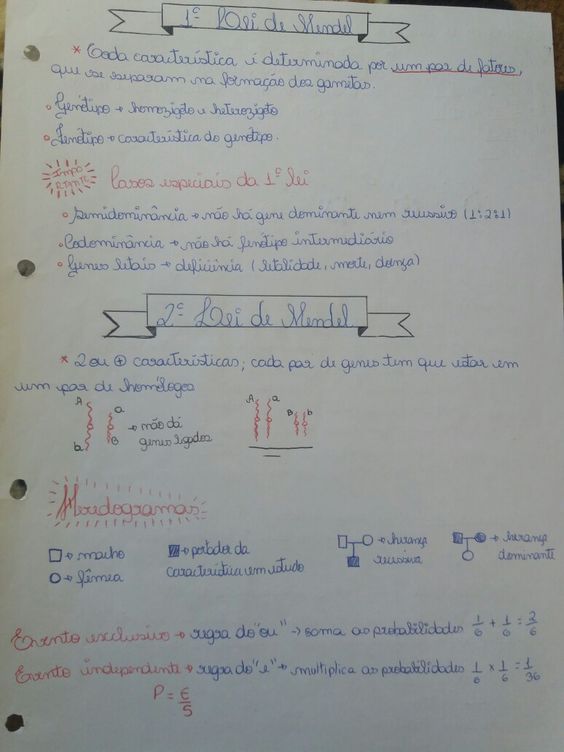 1ª Lei de Mendel
* Cada característica é determinada por um par de fatores,
que se separam na formação dos gametas.
• Genótipo → homozigoto e heterozigoto
• Fenótipo → característica do genótipo.
IMPORTANTE
Casos especiais da 1ª lei
• Semidominância → não há gene dominante nem recessivo (1:2:1)
• Codominância → não há fenótipo intermediário
• Genes letais → deficiência (letalidade, morte, doença)
2ª Lei de Mendel
* 2 ou ⊕ características; cada par de genes tem que estar em
um par de homólogos
A a b B → não dá
genes ligados
A a B b
Heredogramas
□ → macho
○ → fêmea
→ portador da
característica em estudo
→ herança
recessiva
→ herança
dominante
Evento exclusivo → regra do "ou" → soma as probabilidades 1/6 + 1/6 = 2/6
Evento independente → regra do "e" → multiplica as probabilidades 1/6 x 1/6 = 1/36
P = E/S